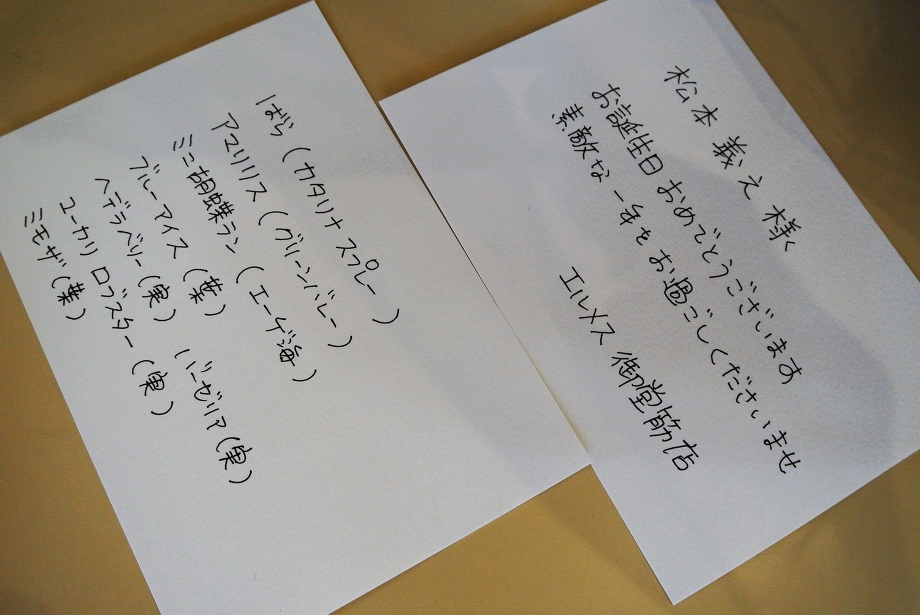 松本 義え 様
お誕生日 おめでとうございます
素敵な 一年を お過ごしくださいませ
エルメス 御堂筋店
ばら (カタリナ スプレー)
アマリリス (グリーンバレー)
ミニ胡蝶ラン (エーゲ海)
ブルーアイス (葉) バーゼリア (実)
ヘデラベリー (実)
ユーカリ ロブスター (実)
ミモザ (葉)